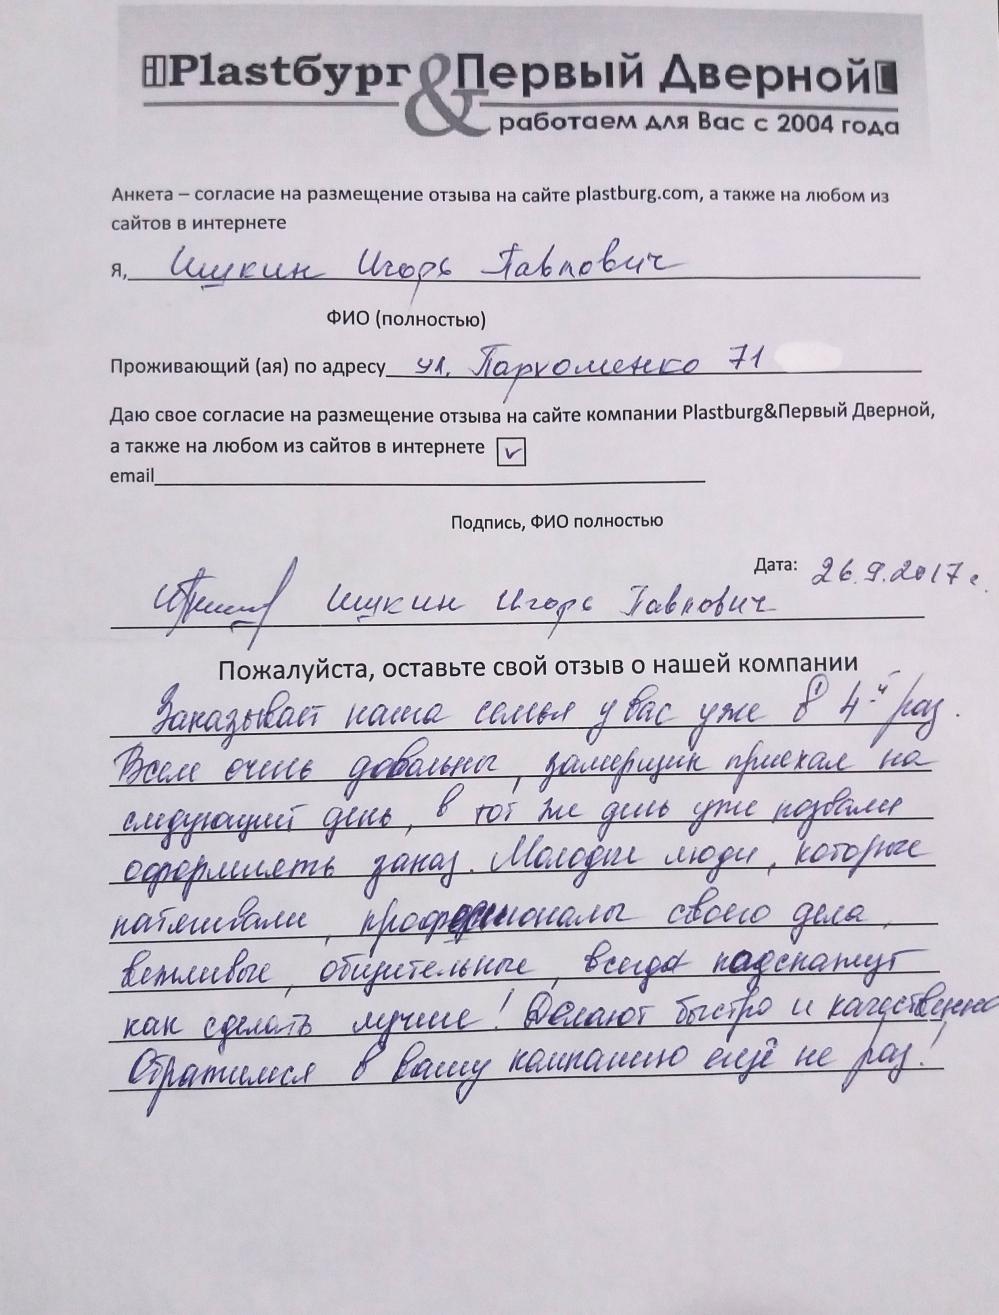 Plastбург & Первый Дверной
работаем для Вас с 2004 года
Анкета – согласие на размещение отзыва на сайте plastburg.com, а также на любом из
сайтов в интернете
Я, Щукин Игорь Павлович
ФИО (полностью)
Проживающий (ая) по адресу ул. Пархоменко 71
Даю свое согласие на размещение отзыва на сайте компании Plastburg&Первый Дверной,
а также на любом из сайтов в интернете
email
Подпись, ФИО полностью
Дата: 26.9.2017 г.
Щукин Игорь Павлович
Пожалуйста, оставьте свой отзыв о нашей компании
Заказывает наша семья у вас уже в 4-й раз.
Всем очень довольны, замерщик приехал на
следующий день, в тот же день уже позвали
оформлять заказ. Молодые люди, которые
натягивали, профессионалы своего дела,
вежливые, общительные, всегда подскажут
как сделать лучше! Делают быстро и качественно
Обратимся в вашу компанию ещё не раз!